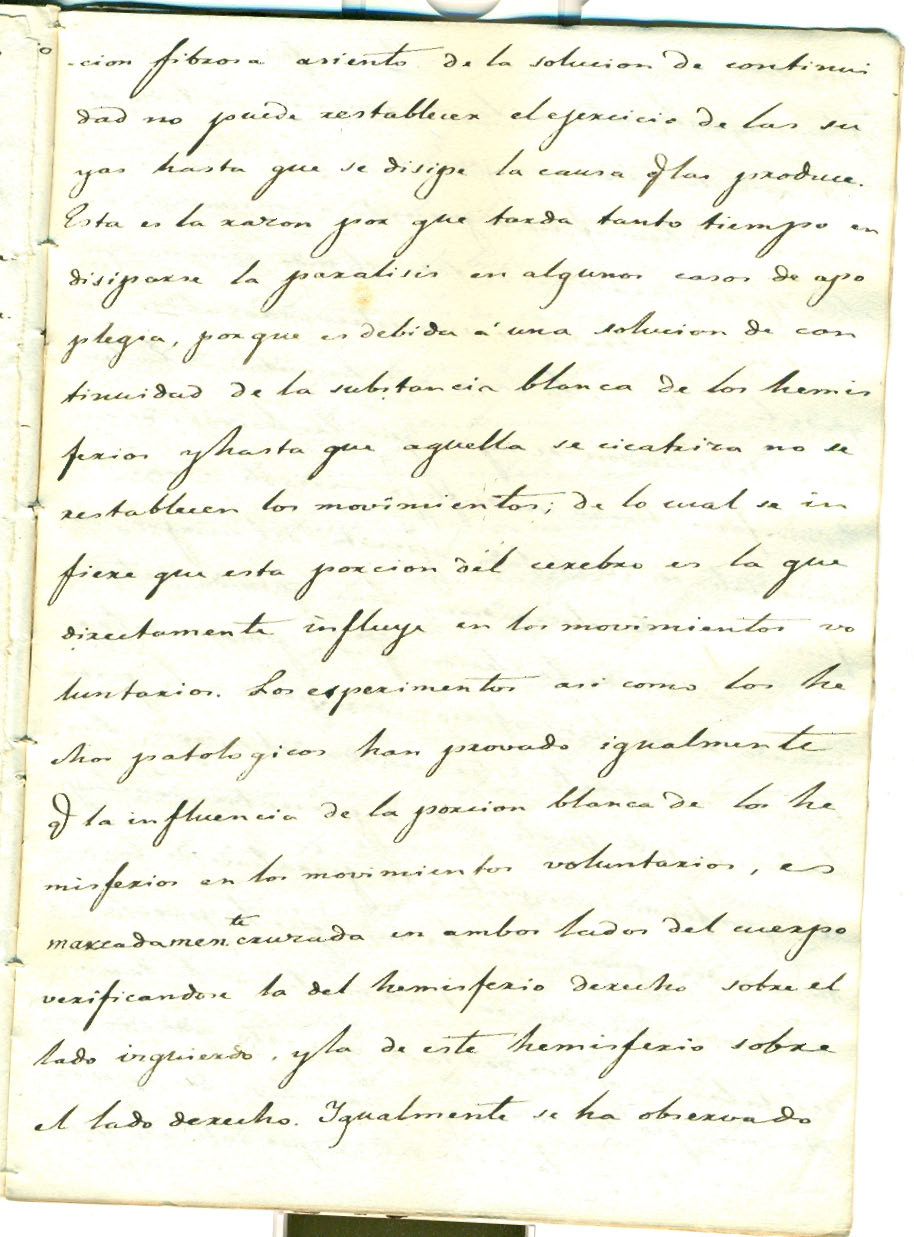 -cion fibrosa asiento de la solucion de continui
dad no puede restablecer el ejercicio de las su
yas hasta que se disipe la causa q las produce.
Esta es la razon por que tarda tanto tiempo en
disiparse la paralisis en algunos casos de apo
plegia, porque es debida á una solucion de con
tinuidad de la substancia blanca de los hemis
ferios y hasta que aquella se cicatriza no se
restablecen los movimientos; de lo cual se in
fiere que esta porcion del cerebro es la que
directamente influye en los movimientos vo
luntarios. Los esperimentos asi como los he
chos patologicos han provado igualmente
q la influencia de la porcion blanca de los he
misferios en los movimientos voluntarios, es
marcadamente cruzada en ambos lados del cuerpo
verificandose la del hemisferio derecho sobre el
lado izquierdo, y la de este hemisferio sobre
el lado derecho. Igualmente se ha observado